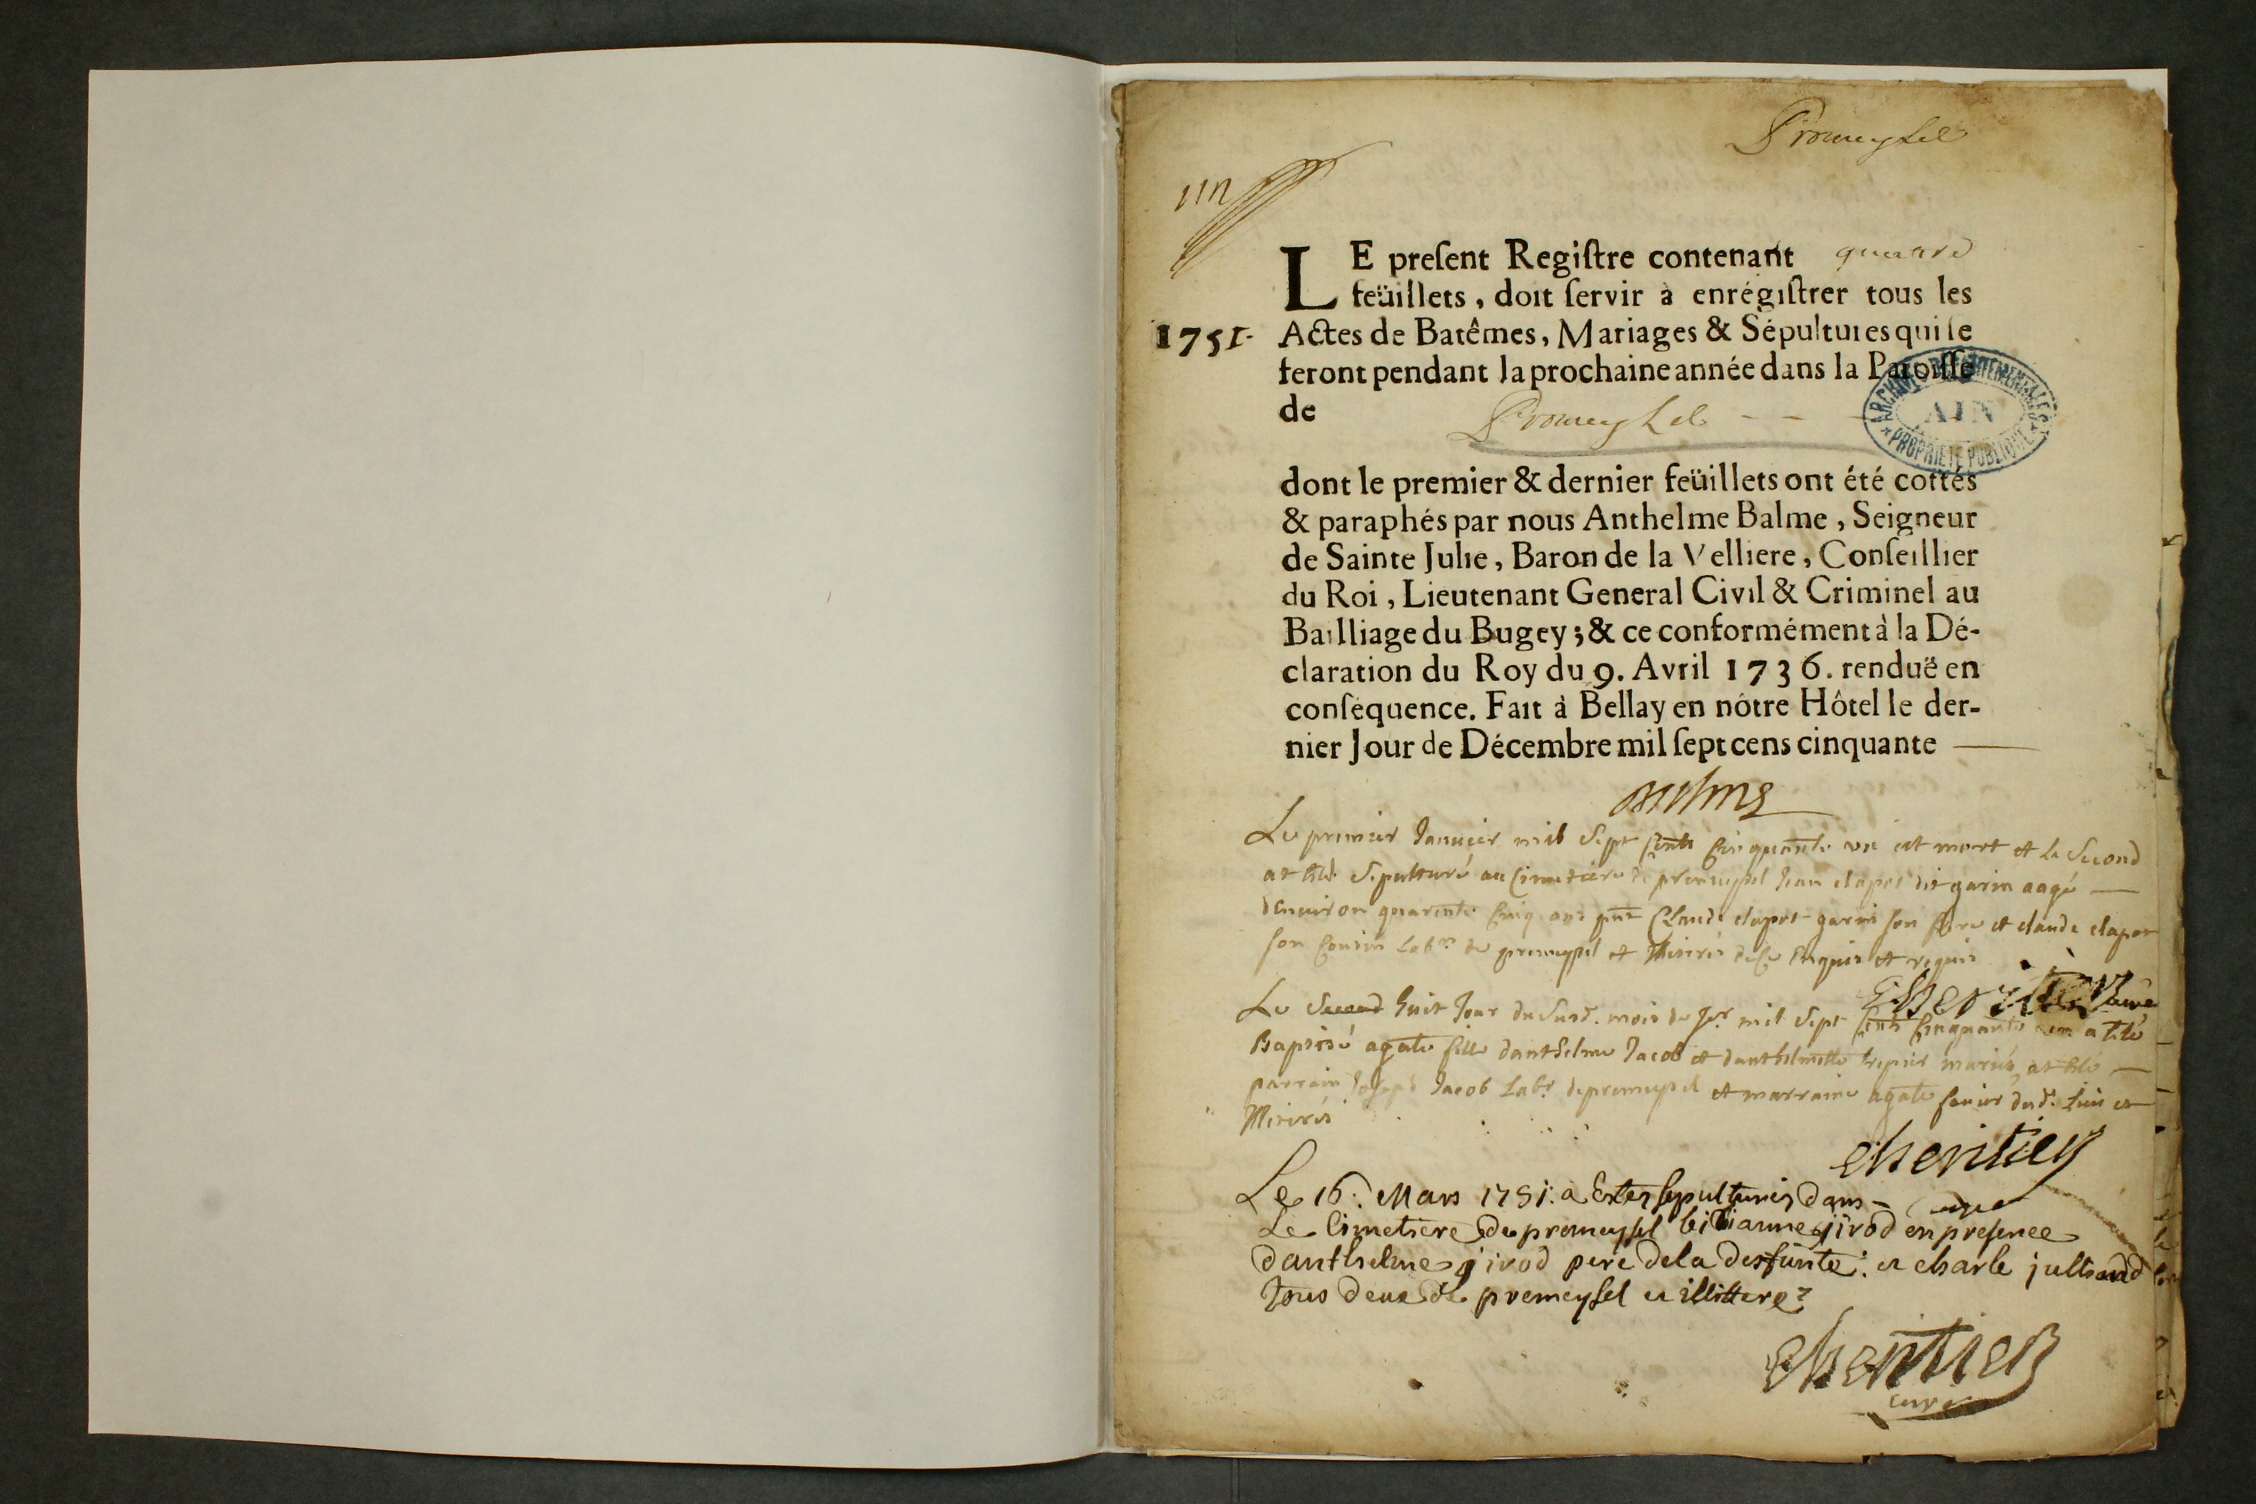 Promeyzel
un
LE preſent Regiſtre contenant quatre
feüillets, doit ſervir à enrégiſtrer tous les
1751. Actes de Batêmes, Mariages & Sépultures qui ſe
feront pendant la prochaine année dans la Paroiſſe
de Promeyzel
ARCHIVES DEPARTEMENTALES
AIN
PROPRIETE PUBLIQUE
dont le premier & dernier feüillets ont été cottés
& paraphés par nous Anthelme Balme, Seigneur
de Sainte Julie, Baron de la Velliere, Conſeillier
du Roi, Lieutenant General Civil & Criminel au
Bailliage du Bugey; & ce conformément à la Dé-
claration du Roy du 9. Avril 1736. renduë en
conſéquence. Fait à Bellay en nôtre Hôtel le der-
nier Jour de Décembre mil ſept cens cinquante
Le premier Janvier mil Sept Cents Cinquante un est mort et le Second
at été Sepulturé au Cimetiere de premeyzel Jean clapot dit garin aagé
denviron quarente Cinq ans pnt Claude clapot garin son frere et claude clapot
son Cousin Labr de premeyzel et Miterés de ce Enquis et requis
Le Second huit Jour du Susd. mois de Jer mil Sept Cents Cinquante un a été
Baptisé agate fille danthelme Jacob et danthelmette mariés, at été
parrain Joseph Jacob Labr de premeyzel et marraine agate dud. Lieu et
Miterés
cheritier
curé
Le 16. Mars 1751. a Estes sepulturés dans
Le Cimetiere de promeysel bibianne jirod en presence
danthelme jirod pere de la desfunte. et charle
Tous deux de premeysel et illittere?
cheritier
curé